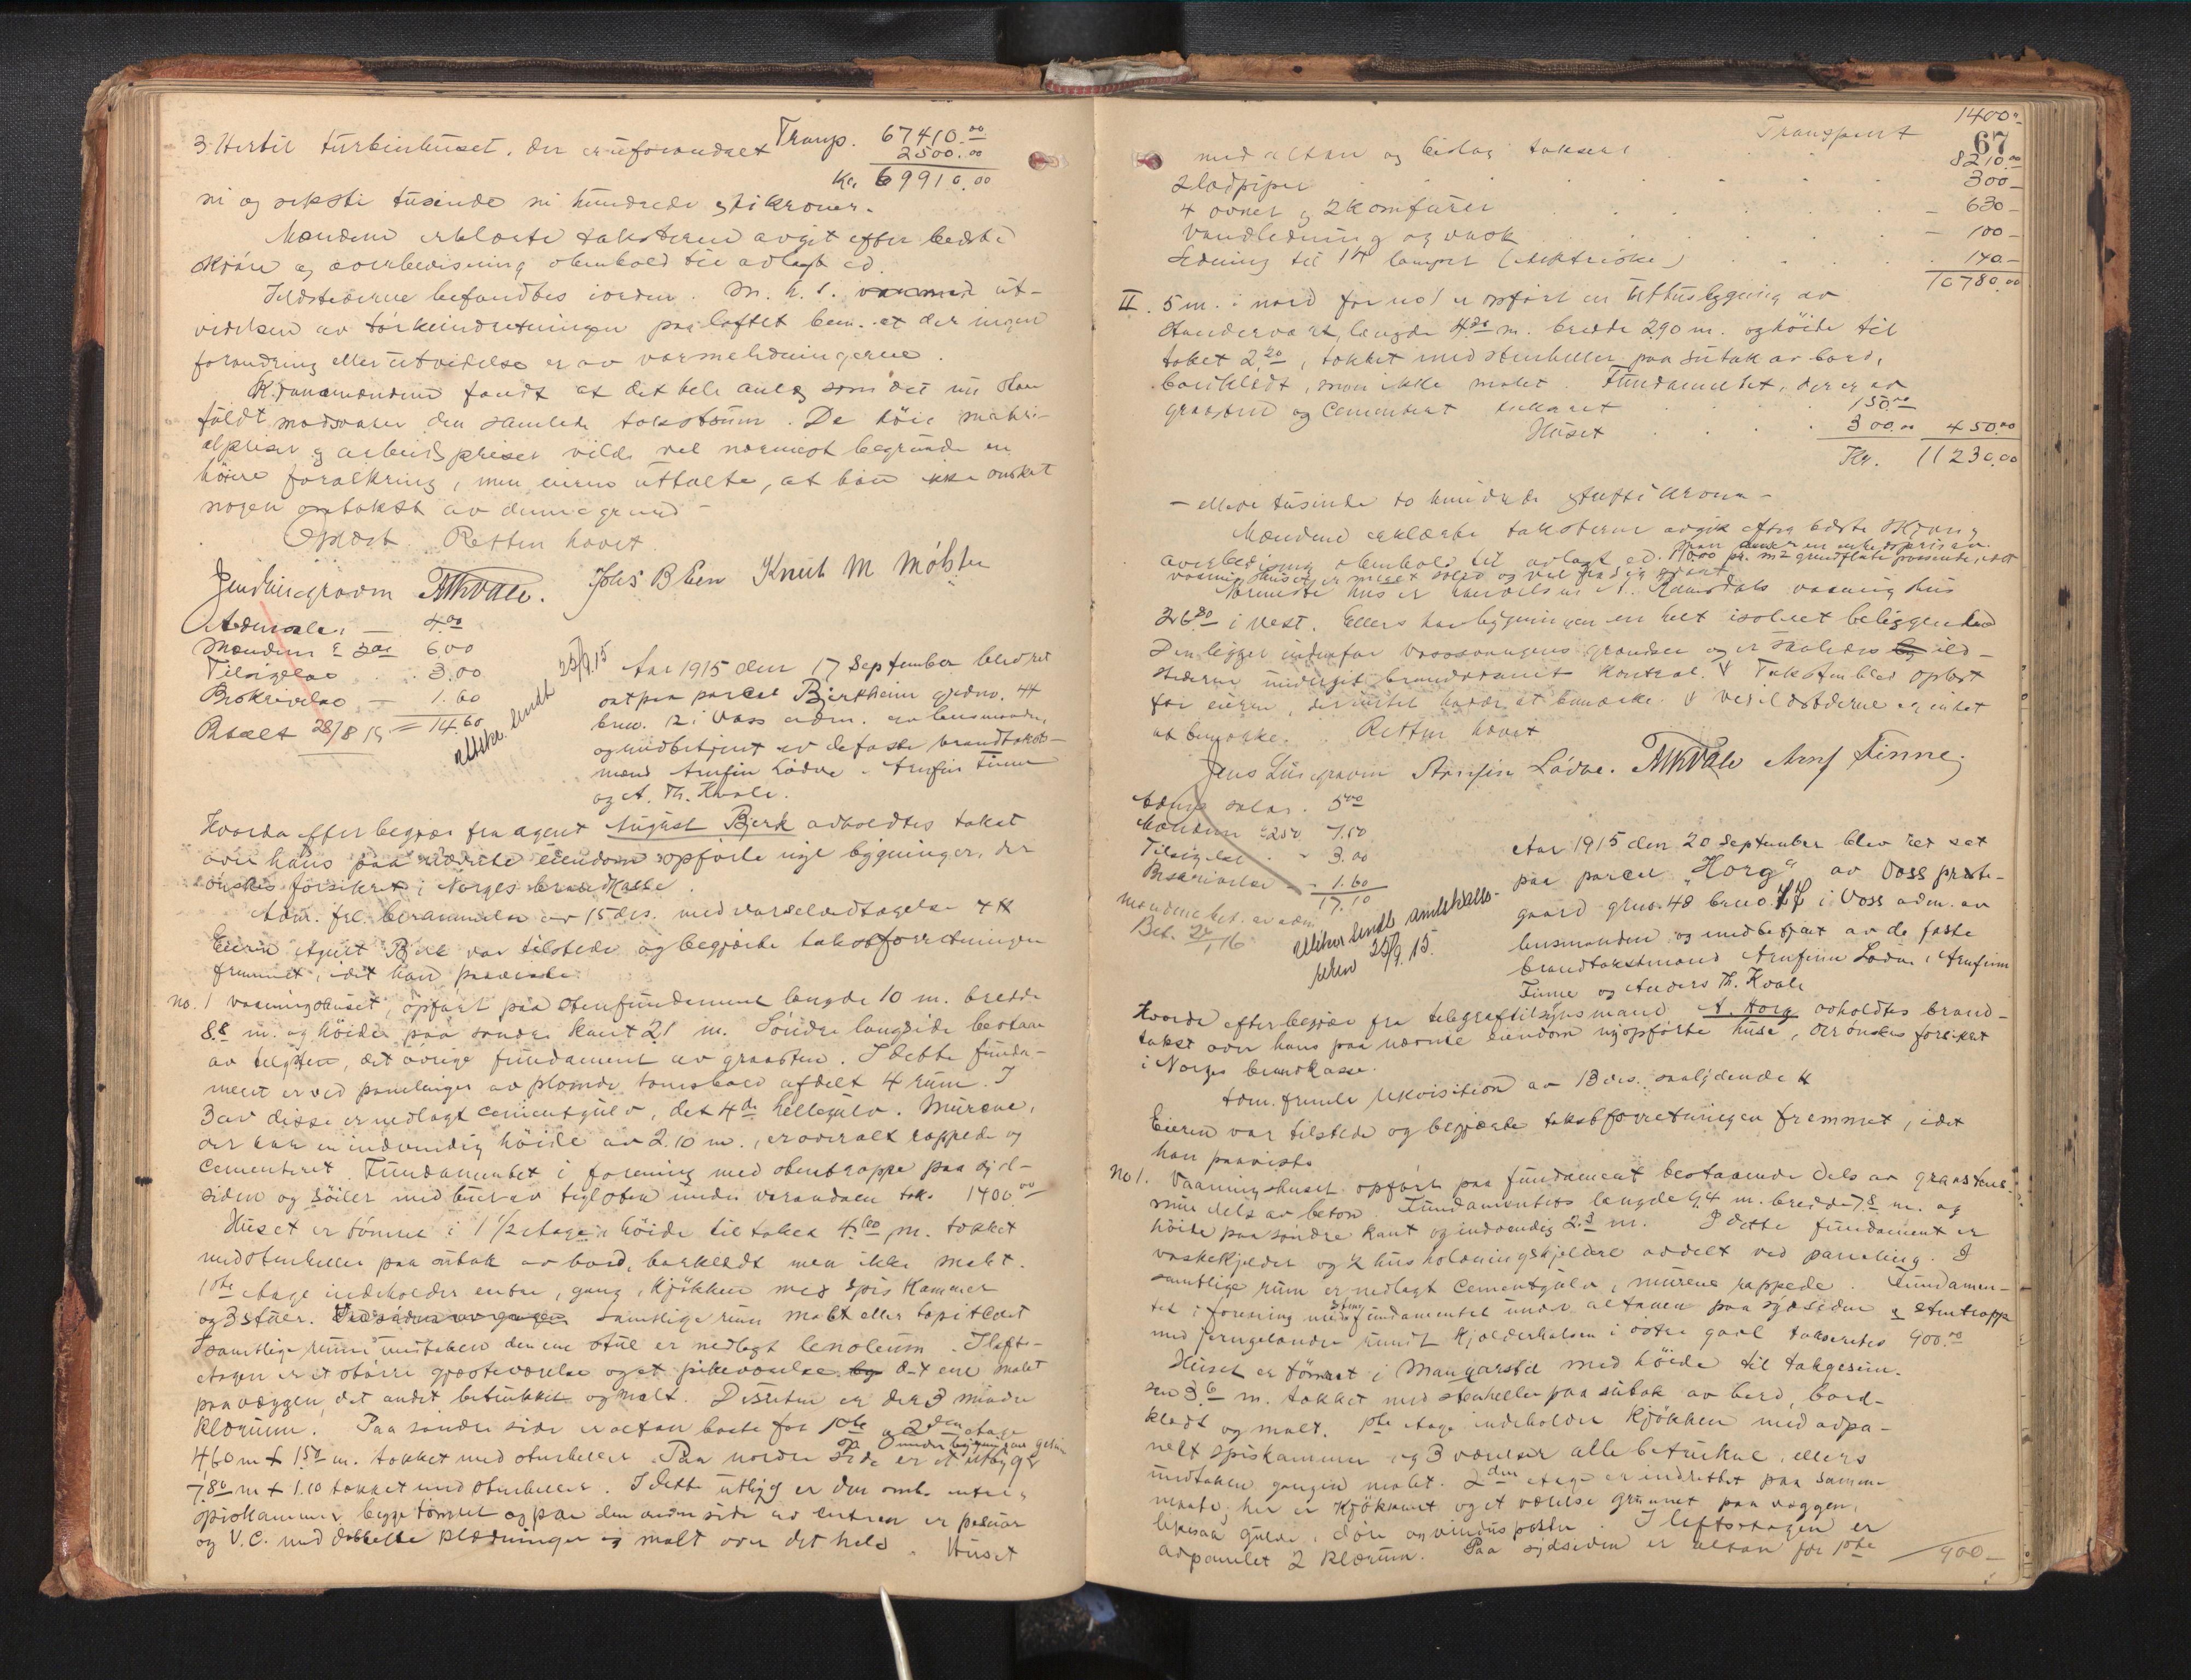 Transp. 67410.00
3. Hertil turbinhuset, der er uforandret 2500.00
Kr. 69910.00
ni og seksti tusinde ni hundrede og ti kroner.
Mændene erklærte taksterne avgit efter bedste
skjøn og overbevisning i henhold til avlagt ed.
Ildstederne befandtes iorden. M. h. t. ut-
videlsen av tørkeindretningen paa loftet bem. at der ingen
forandring eller utvidelse er av varmeledningerne.
fandt at det hele anlæg som det nu staar
fuldt modsvarer den samlede takstsum. De høie materi-
alpriser og arbeidspriser vilde vel nærmest begrunde en
høiere forsikring, men eieren uttalte, at han ikke ønsket
nogen omtakst av denne grund -
Oplæst. Retten hævet.
Jens Liisgravm AThKvale. Johs B Eien Knut M Mølster
Adm.salær — 4.00
Mændene à 2.00 6.00
Tilsigelse . . 3.00
Beskrivelse — 1.60
= 14.60
Betalt 28/8 15
Utskr. sendt 25/9.15
Aar 1915 den 17 September blev ret
sat paa parcel Bjerkheim gardsno. 44
bno. 12 i Voss adm. av lensmanden,
og medbetjent av de faste brandtakst-
mænd Arnfin Lødve, Arnfin Finne
og A. Th. Kvale.
Hvorda efter begjær fra agent August Bjerk avholdtes takst
over hans paa nævnte eiendom opførte nye bygninger, der
ønskes forsikret i Norges brandkasse.
Adm. frl. berammelse av 15 ds. med varselvedtagelse
Eieren Agent Bjerk var tilstede og begjærte takstforretningen
fremmet, idet han paaviste:
no. 1 vaaningshuset, opført paa stenfundament længde 10 m. bredde
8.8 m. og høide paa søndre kant 2.1 m. Søndre langside bestaar
av teglsten, det øvrige fundament av graasten. I dette funda-
ment er ved panelinger av pløiede tomsbord afdelt 4 rum. I
3 av disse er nedlagt cementgulv, det 4de hellegulv. Murene,
der har en indvendig høide av 2.10 m., er overalt rappede og
cementeret. Fundamentet i forening med stentrappe paa syd-
siden og søiler med buer av teglsten under verandaen tak. 1400.00
Huset er tømret i 1 1/2 etage i høide til taket 4.60 m. tækket
med stenheller paa sutak av bord, bordklædt men ikke malt.
1ste etage indeholder entre, gang, kjøkken med spiskammer
og 3 stuer. Samtlige rum malt eller tapetseret
I samtlige rum undtaken den ene stue er nedlagt lenoleum. I lofts-
etagen er et større gjæsteværelse og et pikeværelse det ene malt
paa væggen, det andet betrukket og malt. Desuten er der 3 mindre
klærum. Paa søndre side er altan baade for 1ste og 2den etage
4,60 m + 1.50 m. tækket med stenheller. Paa nordre side er et utbygg under bygningens gesims
7.80 m + 1.10 tækket med stenheller. I dette utbygg er den omt. entre,
spiskammer begge tømret og paa den anden side av entreen er pissoir
og V.C. med dobbelte klædninger og malt over det hele. Huset
67
Transport 1400.-
med altan og bislag takseret 8210.00
2 ladpiper . . . . 300 —
4 ovner og 2 komfurer . . . — 630 —
Vandledning og vask . . . — 100 —
Ledning til 14 lamper (elektriske) . . 140 —
10780.00
II. 5 m. i nord for no 1 er opført en uthusbygning av
stenderværk, længde 4.20 m. bredde 2.90 m. og høide til
taket 2.20, tækket med stenheller paa sutak av bord,
bordklædt, men ikke malet. Fundamentet, der er av
graasten og Cementert takseret . . 150.00
Huset . . . 300.00 450.00
Kr. 11230.00
— elleve tusinde to hundrede og tretti kroner —
Mændene erklærte taksterne avgit efter bedste skjøn og
overbevisning i henhold til avlagt ed. Man finder en enhedspris av
1000 pr. m2 grundflate passende, idet
vaaningshuset er meget solid og vel færdig gjort.
Nærmeste hus er Ramsdals vaaningshus
26.80 i vest. Ellers har bygningen en helt isoleret beliggenhed
Den ligger indenfor Vossevangens grænser og er saaledes ild-
stederne undergit brandvæsenets kontrol. Taksten blev oplæst
for eieren, der intet havde at bemærke. Ved ildstederne er intet
at bemærke. Retten hævet
Jens Liisgravm Arnfin Lødve. AThKvale Arnf Finne.
Adm.s salær . 5.00
Mændene à 2.50 7.50
Tilsigelse . - 3.00
Beskrivelse - - 1.60
17.10
Mændene bet. av adm
Bet. 24/1 16
Utskr sendt amtskasse-
reren 25/9.15.
Aar 1915 den 20 September blev ret sat
paa parcel "Horg" av Voss præste-
gaard grno. 48 bno. i Voss adm. av
lensmanden og medbetjent av de faste
brandtakstmænd Arnfinn Lødve, Arnfinn
Finne og Anders Th. Kvale
Hvorda efter begjær fra telegraftilsynsmand A. Horg avholdtes brand-
takst over hans paa nævnte eiendom nyopførte huse, der ønskes forsikret
i Norges brandkasse.
Adm. fremla rekvisition av 13 ds. saalydende
Eieren var tilstede og begjærte takstforretningen fremmet, idet
han paaviste
No 1. Vaaningshuset opført paa fundament bestaaende dels av graastens-
mur dels av beton. Fundamentets længde 9.4 m. bredde 7.8 m. og
høide paa søndre kant og indvendig 2.3 m. I dette fundament er
vaskekjelder og 2 husholdningskjeldere avdelt ved paneling. I
samtlige rum er nedlagt cementgulv, murene rappede. Fundamen-
tet i forening med stenfundamentet under altanen paa sydsiden og stentrapp
med jerngelænder rundt kjelderhalsen i østre gavl takseredes 900.00
Huset er tømret i Mansardstil med høide til takgesim-
sen 3.6 m. tækket med stenheller paa sutak av bord, bord-
klædt og malt. 1ste etage indeholder kjøkken med avpa-
nelt spiskammer og 3 værelser alle betrukne, ellers
undtaken gangen malet. 2den etage er indrettet paa samme
maate, her er kjøkkenet og et værelse grunnet paa væggen,
likesaa gulve, døre og vindusposter. I loftsetagen er
avpanelet 2 klærum. Paa sydsiden er altan for 1ste
900 —